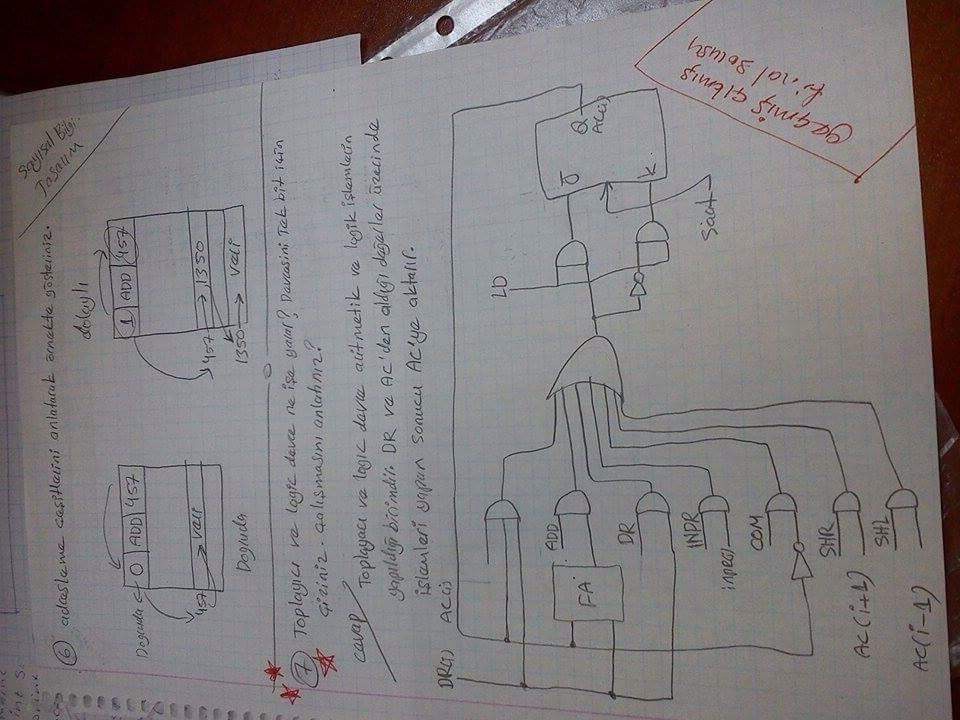 Sayısal Bilgi
Tasarım
6 adresleme çeşitlerini anlatarak örnekte gösteriniz.
Doğrudan
0 ADD 457
457
veri
Doğruda
dolaylı
1 ADD 457
457
1350
1350
veri
7 Toplayıcı ve logic devre ne işe yarar? Devresini Tek bit için
çiziniz. Çalışmasını anlatınız?
cevap
Toplayıcı ve logic devre aritmetik ve logik işlemlerin
yapıldığı birimdir. DR ve AC'den aldığı değerler üzerinde
işlemleri yapan sonucu AC'ye aktarır.
DR(i) AC(i)
ADD
FA
DR
INDR
INPR(i)
COM
SHR
AC(i+1)
SHL
AC(i-1)
LD
J
Q
AC(i)
K
Saat
geçmiş çıkmış
final sorusu